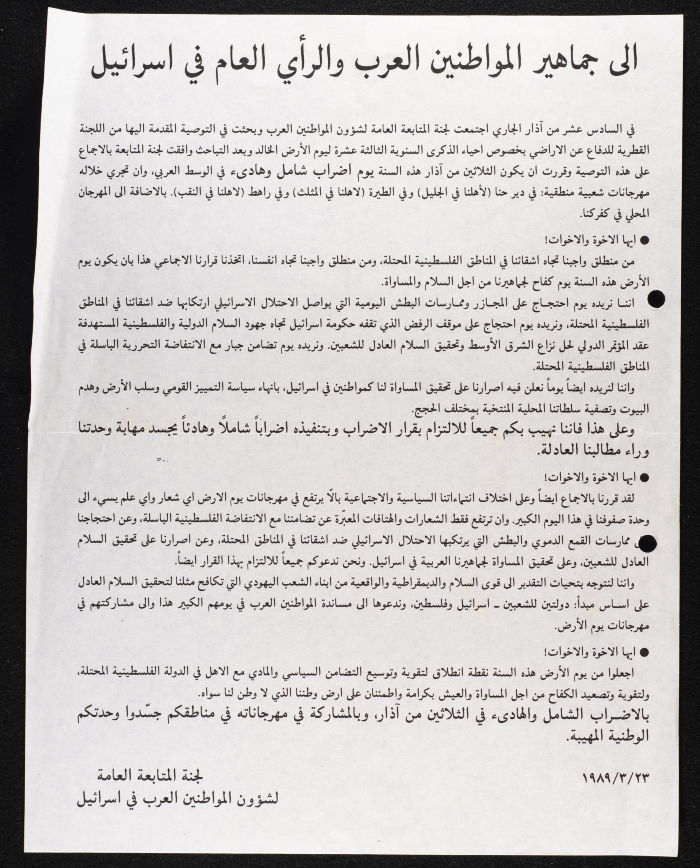 الى جماهير المواطنين العرب والرأي العام في اسرائيل
في السادس عشر من آذار الجاري اجتمعت لجنة المتابعة العامة لشؤون المواطنين العرب وبحثت في التوصية المقدمة اليها من اللجنة
القطرية للدفاع عن الاراضي بخصوص احياء الذكرى السنوية الثالثة عشرة ليوم الأرض الخالد وبعد التباحث وافقت لجنة المتابعة بالاجماع
على هذه التوصية وقررت ان يكون الثلاثين من آذار هذه السنة يوم أضراب شامل وهادىء في الوسط العربي، وان تجري خلاله
مهرجانات شعبية منطقية: في دير حنا (لأهلنا في الجليل) وفي الطيرة (لاهلنا في المثلث) وفي راهط (لاهلنا في النقب). بالاضافة الى المهرجان
المحلي في كفركنا.
● ايها الاخوة والاخوات!
من منطلق واجبنا تجاه اشقائنا في المناطق الفلسطينية المحتلة، ومن منطلق واجبنا تجاه انفسنا، اتخذنا قرارنا الاجماعي هذا بان يكون يوم
الأرض هذه السنة يوم كفاح لجماهيرنا من اجل السلام والمساواة.
اننا نريده يوم احتجاج على المجازر وممارسات البطش اليومية التي يواصل الاحتلال الاسرائيلي ارتكابها ضد اشقائنا في المناطق
الفلسطينية المحتلة، ونريده يوم احتجاج على موقف الرفض الذي تقفه حكومة اسرائيل تجاه جهود السلام الدولية والفلسطينية المستهدفة
عقد المؤتمر الدولي لحل نزاع الشرق الأوسط وتحقيق السلام العادل للشعبين. ونريده يوم تضامن جبار مع الانتفاضة التحررية الباسلة في
المناطق الفلسطينية المحتلة.
واننا لنريده ايضاً يوماً نعلن فيه اصرارنا على تحقيق المساواة لنا كمواطنين في اسرائيل، بانهاء سياسة التمييز القومي وسلب الأرض وهدم
البيوت وتصفية سلطاتنا المحلية المنتخبة بمختلف الحجج.
وعلى هذا فاننا نهيب بكم جميعاً للالتزام بقرار الاضراب وبتنفيذه اضراباً شاملاً وهادئاً يجسد مهابة وحدتنا
وراء مطالبنا العادلة.
● ايها الاخوة والاخوات!
لقد قررنا بالاجماع ايضاً وعلى اختلاف انتماءاتنا السياسية والاجتماعية بالّا يرتفع في مهرجانات يوم الارض اي شعار واي علم يسيء الى
وحدة صفوفنا في هذا اليوم الكبير. وان ترتفع فقط الشعارات والهتافات المعبّرة عن تضامننا مع الانتفاضة الفلسطينية الباسلة، وعن احتجاجنا
ممارسات القمع الدموي والبطش التي يرتكبها الاحتلال الاسرائيلي ضد اشقائنا في المناطق المحتلة، وعن اصرارنا على تحقيق السلام
العادل للشعبين، وعلى تحقيق المساواة لجماهيرنا العربية في اسرائيل. ونحن ندعوكم جميعاً للالتزام بهذا القرار ايضاً.
واننا لنتوجه بتحيات التقدير الى قوى السلام والديمقراطية والواقعية من ابناء الشعب اليهودي التي تكافح مثلنا لتحقيق السلام العادل
على اساس مبدأ: دولتين للشعبين ــ اسرائيل وفلسطين، وندعوها الى مساندة المواطنين العرب في يومهم الكبير هذا والى مشاركتهم في
مهرجانات يوم الأرض.
● ايها الاخوة والاخوات!
اجعلوا من يوم الأرض هذه السنة نقطة انطلاق لتقوية وتوسيع التضامن السياسي والمادي مع الاهل في الدولة الفلسطينية المحتلة،
ولتقوية وتصعيد الكفاح من اجل المساواة والعيش بكرامة واطمئنان على ارض وطننا الذي لا وطن لنا سواه.
بالاضراب الشامل والهادىء في الثلاثين من آذار، وبالمشاركة في مهرجاناته في مناطقكم جسّدوا وحدتكم
الوطنية المهيبة.
٢٣/٣/١٩٨٩
لجنة المتابعة العامة
لشؤون المواطنين العرب في اسرائيل